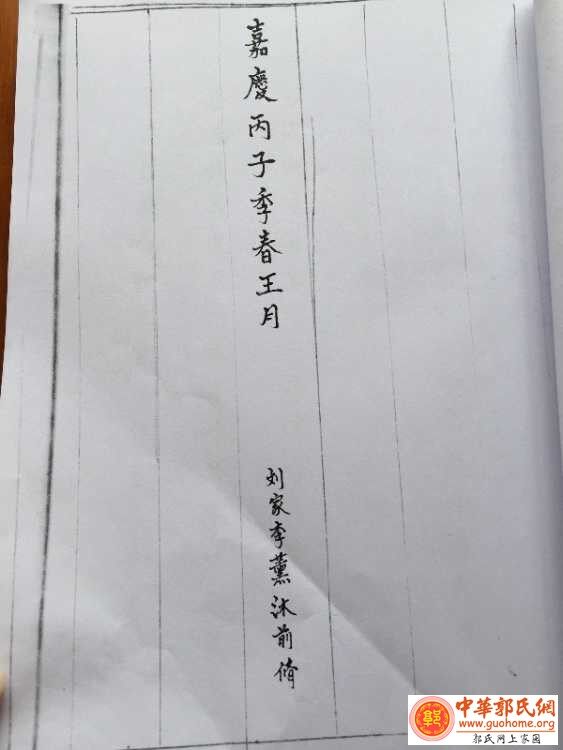 嘉慶丙子季春王月
刘家李薰沐前脩
中華郭氏網
www.guohome.org
郭氏网上家园